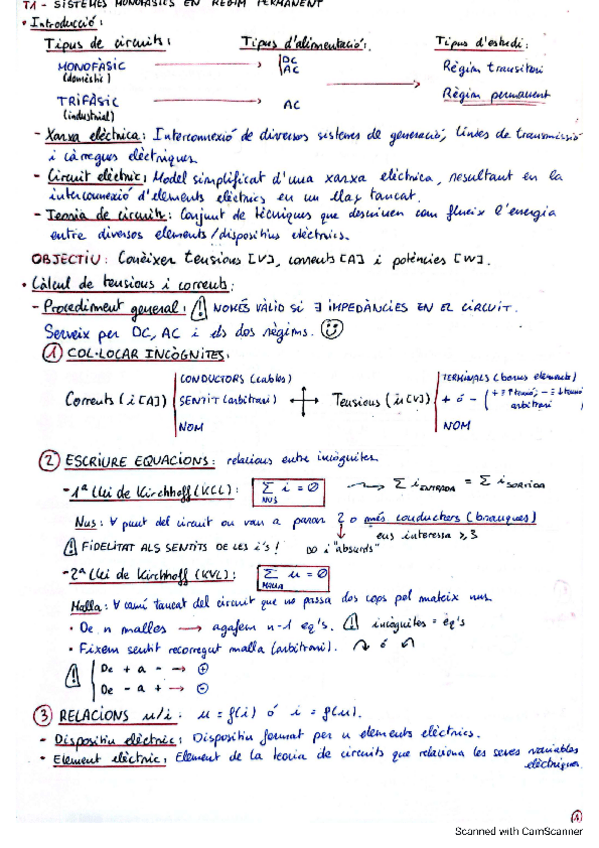 T1 - SISTEMES MONOFÀSICS EN RÈGIM PERMANENT
• Introducció:
Tipus de circuits: Tipus d'alimentació: Tipus d'estudi:
MONOFÀSIC (domèstic) → DC AC Règim transitori
TRIFÀSIC (industrial) → AC → Règim permanent
- Xarxa elèctrica: Interconnexió de diversos sistemes de generació, línies de transmissió
i càrregues elèctriques.
- Circuit elèctric: Model simplificat d'una xarxa elèctrica, resultant en la
interconnexió d'elements elèctrics en un llaç tancat.
- Teoria de circuits: Conjunt de tècniques que descriuen com flueix l'energia
entre diversos elements/dispositius elèctrics.
OBJECTIU: Conèixer tensions [V], corrents [A] i potències [W].
• Càlcul de tensions i corrents:
- Procediment general: ⚠ NOMÉS VÀLID SI ∃ IMPEDÀNCIES EN EL CIRCUIT.
Serveix per DC, AC i els dos règims. ☺
① COL·LOCAR INCÒGNITES:
CONDUCTORS (cables) TERMINALS (borns elements)
Corrents (i [A]) SENTIT (arbitrari) ↔ Tensions (u [V]) + ó - (+ ≡ ↑ tensió, - ≡ ↓ tensió arbitrari
NOM NOM
② ESCRIURE EQUACIONS: relacions entre incògnites
- 1ª Llei de Kirchhoff (KCL): Σ i = 0 NUS → Σ i ENTRADA = Σ i SORTIDA
Nus: ∀ punt del circuit on van a parar 2 o més conductors (branques)
⚠ FIDELITAT ALS SENTITS DE LES i's! ∞ i "absurds" ens interessa ≥ 3
- 2ª Llei de Kirchhoff (KVL): Σ u = 0 MALLA
Malla: ∀ camí tancat del circuit que no passa dos cops pel mateix nus.
• De n malles → agafem n-1 eq's. ⚠ incògnites = eq's
• Fixem sentit recorregut malla (arbitrari). ↷ ó ↶
⚠ De + a - → ⊕
De - a + → ⊖
③ RELACIONS u/i: u = f(i) ó i = f(u).
- Dispositiu elèctric: Dispositiu format per n elements elèctrics.
• Element elèctric: Element de la teoria de circuits que relaciona les seves variables
elèctriques.
1
Scanned with CamScanner